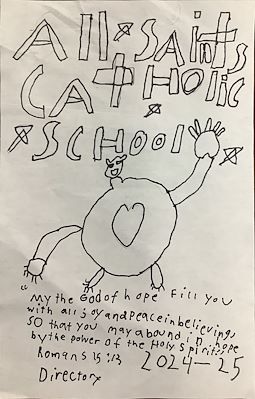 All Saints
CAtHolic
SCHOOL
"My the God of hope Fill you
with all joy and peace in believing,
SO that you may abound in hope
by the power of the Holy Spirit."
Romans 15:13
2024-25
Directory